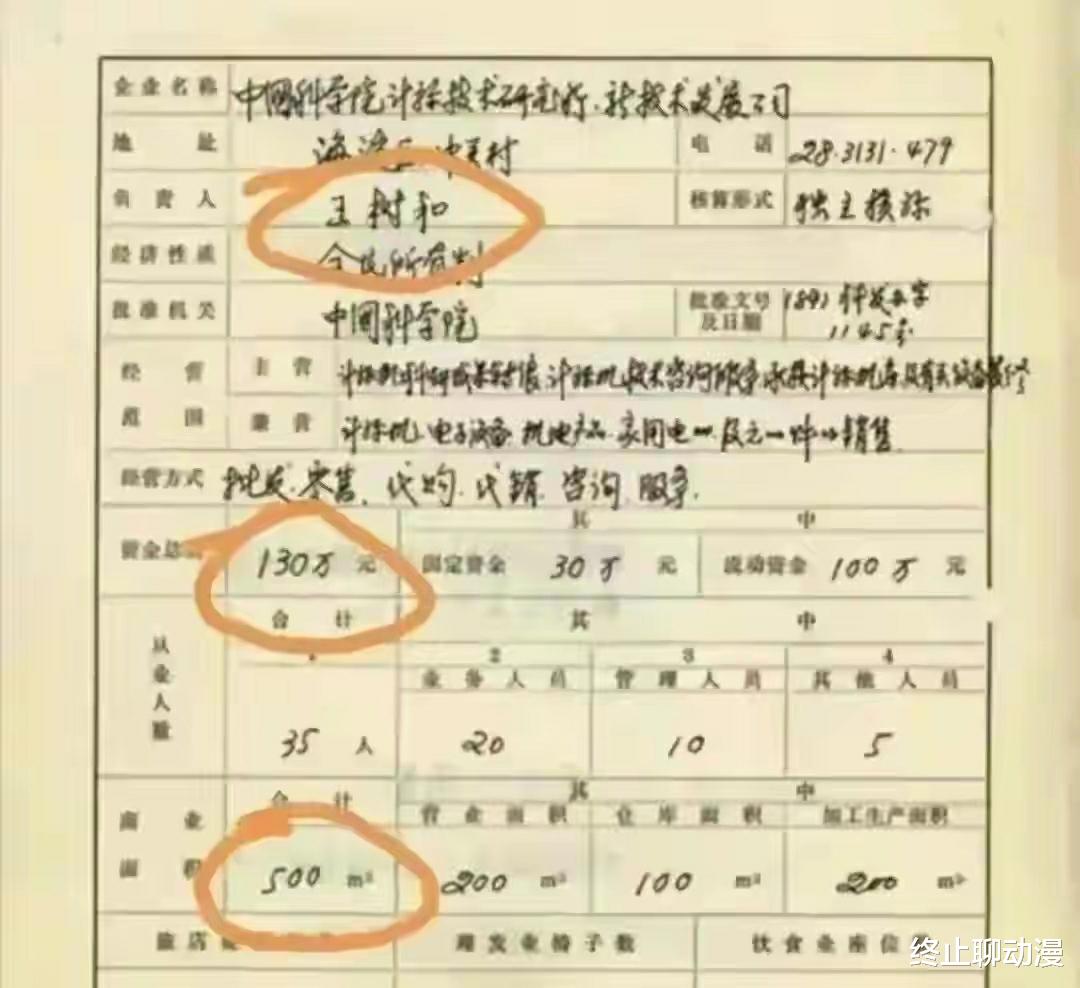 企业名称 中国科学院计算技术研究所、新技术发展公司
地址 海淀区中关村 电话 28.3131.479
负责人 王树和 核算形式 独立核算
经济性质 全民所有制
批准机关 中国科学院 批准文号及日期 科发 字 1145号
经营范围 主营 计算机科研成果 计算机技术咨询服务 计算机 及有关设备
兼营 计算机、电子设备、机电产品、家用电 销售
经营方式 批发、零售、代购、代销、咨询、服务.
其中
资金总 130万元 固定资金 30万元 流动资金 100万元
合计 其中
从业人数 1 2 3 4
业务人员 管理人员 其他人员
35人 20 10 5
合计 其中
商业面积 营业面积 仓库面积 加工生产面积
500 m² 200 m² 100 m² 200 m²
旅店 理发业椅子数 饮食业座位
终止聊动漫